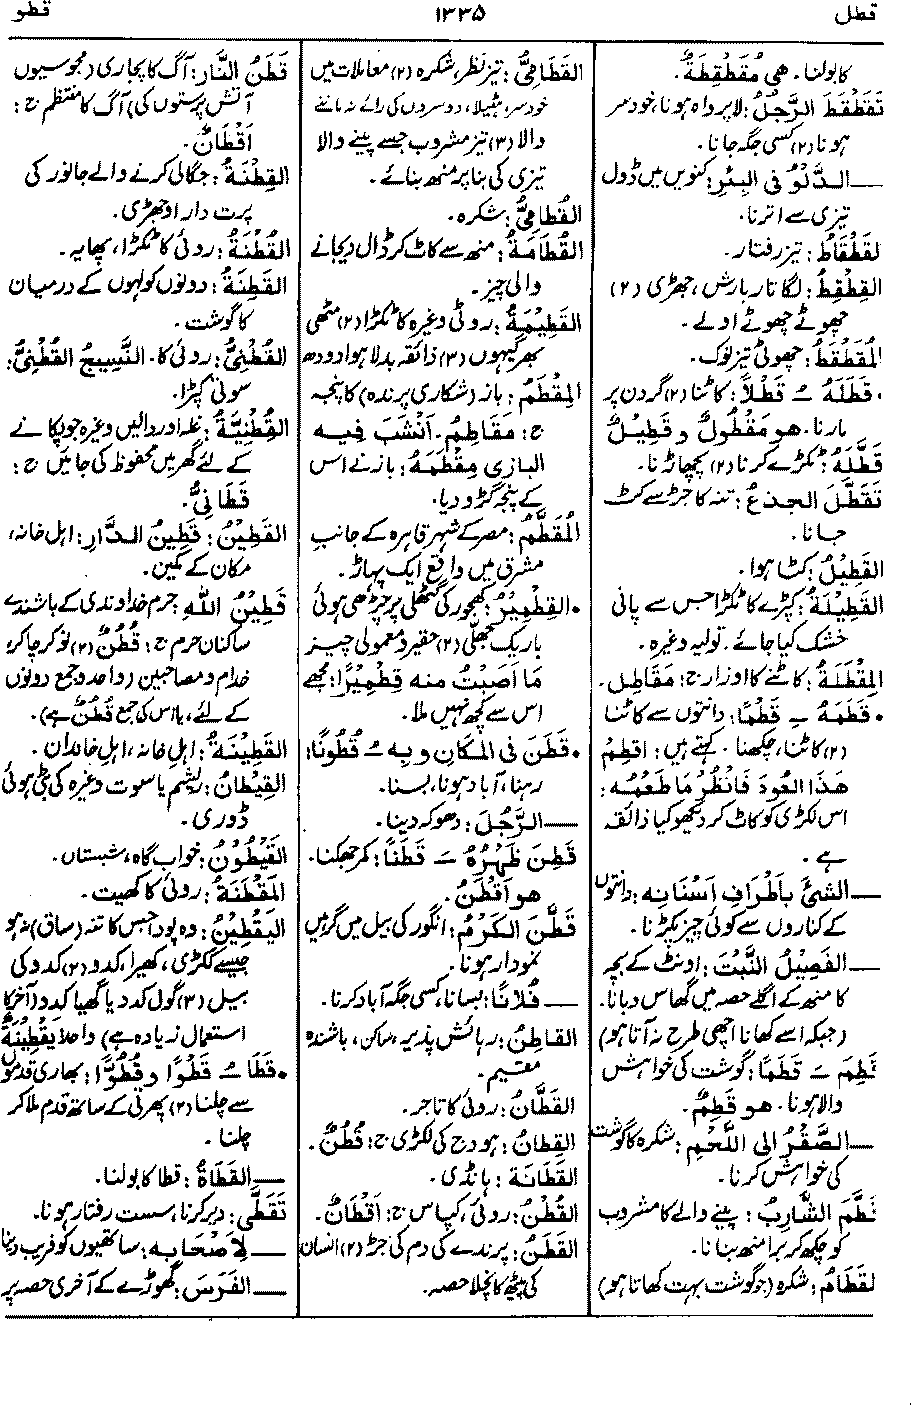 قطل
۱۳۳۵
قطو
کا بولنا۔ ھی مُقَطْقِطَةٌ۔
تَقَطْقَطَ الرَّجُلُ: لاپرواہ ہونا، خودسر
ہونا (۲) کسی جگہ جانا۔
—الدَّلْوُ فی البِئرِ: کنویں میں ڈول
تیزی سے اترنا۔
لقَطْقَاطُ: تیز رفتار۔
القِطْقِطُ: لگاتار بارش، جھڑی (۲)
چھوٹے چھوٹے اولے۔
المُقَطْقَطُ: چھوٹی تیز نوک۔
• قَطَلَهُ ـُ قَطْلاً: کاٹنا (۲) گردن پر
مارنا۔ ھو مَقْطُولٌ و قَطِیلٌ
قَطَّلَهُ: ٹکڑے کرنا (۲) پچھاڑنا۔
تَقَطَّلَ الجذعُ: تنہ کا جڑ سے کٹ
جانا۔
القَطِیْلُ: کٹا ہوا۔
القَطِیْلَةُ: کپڑے کا ٹکڑا جس سے پانی
خشک کیا جائے۔ تولیہ وغیرہ۔
المِقْطَلَةُ: کاٹنے کا اوزار ج: مَقَاطِل۔
• قَطَمَهُ ـِ قَطْمًا: دانتوں سے کاٹنا
(۲) کاٹنا، چکھنا۔ کہتے ہیں: اقطِمْ
هَذَا العُودَ فَانْظُرْ مَا طَعْمُه:
اس لکڑی کو کاٹ کر دیکھو کیا ذائقہ
ہے۔
—الشیَّ بِأَطْرَافِ أَسْنَانِه: دانتوں
کے کناروں سے کوئی چیز پکڑنا۔
—الفَصِیْلُ النَّبْتَ: اونٹ کے بچہ
کا منھ کے اگلے حصہ میں گھاس دبانا۔
(جبکہ اسے کھانا اچھی طرح نہ آتا ہو)
قَطِمَ ـَ قَطَمًا: گوشت کی خواہش
والا ہونا۔ ھو قَطِمٌ۔
—الصَّقْرُ إلی اللَّحْمِ: شکرہ کا گوشت
کی خواہش کرنا۔
قَطَّمَ الشَّارِبُ: پینے والے کا مشروب
کو چکھ کر برا منھ بنانا۔
لقَطَامُ: شکرہ (جو گوشت بہت کھاتا ہو)
القَطَامِیُّ: تیز نظر، شکرہ (۲) معاملات میں
خودسر، ہٹیلا، دوسروں کی رائے نہ ماننے
والا (۳) تیز مشروب جسے پینے والا
تیزی کی بنا پر منھ بنائے۔
القُطَامِیُّ: شکرہ۔
القُطَامَةُ: منھ سے کاٹ کر ڈال دی جانے
والی چیز۔
القَطِیْمَةُ: روٹی وغیرہ کا ٹکڑا (۲) مٹھی
بھر گیہوں (۳) ذائقہ بدلا ہوا دودھ
المِقْطَمُ: باز (شکاری پرندہ) کا پنجہ
ج: مَقَاطِمُ۔ أَنْشَبَ فیه
البازی مِقْطَمَهُ: باز نے اس
کے پنجہ گڑو دیا۔
المُقَطَّمُ: مصر کے شہر قاہرہ کے جانب
مشرق میں واقع ایک پہاڑ۔
• القِطْمِیْرُ: کھجور کی گٹھلی پر چڑھی ہوئی
باریک جھلی (۲) حقیر و معمولی چیز
مَا أَصَبْتُ منه قِطْمِیْرًا: مجھے
اس سے کچھ نہیں ملا۔
• قَطَنَ فی المَکَانِ و بِه ـُ قُطُونًا:
رہنا، آباد ہونا، بسنا۔
—الرَّجُلَ: دھوکہ دینا۔
قَطِنَ ظَهْرُهُ ـَ قَطَنًا: کمر جھکنا۔
ھو أَقْطَنُ۔
قَطَّنَ الکَرْمُ: انگور کی بیل میں گرہیں
نمودار ہونا۔
—فُلَانًا: بسانا، کسی جگہ آباد کرنا۔
القاطِنُ: رہائش پذیر، ساکن، باشندہ
مقیم۔
القَطَّانُ: روئی کا تاجر۔
القِطَانُ: ہودج کی لکڑی ج: قُطُنٌ۔
القَطَانَة: ہانڈی۔
القُطْنُ: روئی، کپاس ج: أَقْطَانٌ۔
القَطَنُ: پرندے کی دم کی جڑ (۲) انسان
کی پیٹھ کا نچلا حصہ۔
قَطَنُ النَّار: آگ کا پجاری (مجوسیوں
آتش پرستوں کی) آگ کا منتظم ج:
أَقْطَانٌ۔
القِطْنَةُ: جگالی کرنے والے جانور کی
پرت دار اوجھڑی۔
القُطْنَةُ: روئی کا ٹکڑا، پھایہ۔
القَطِنَةُ: دونوں کولہوں کے درمیان
کا گوشت۔
القُطْنِیُّ: روئی کا۔ النَّسِیجُ القُطْنِیُّ:
سوتی کپڑا۔
القُطْنِیَّةُ: غلہ اور دالیں وغیرہ جو پکانے
کے لئے گھر میں محفوظ کی جائیں ج:
قَطَانِیُّ۔
القَطِیْنُ: قَطِیْنُ الدَّارِ: اہل خانہ،
مکان کے مکین۔
قَطِیْنُ اللهِ: حرم خداوندی کے باشندے
ساکنان حرم ج: قُطُنٌ (۲) نوکر چاکر
خدام و مصاحبین (واحد و جمع دونوں
کے لئے، یا اس کی جمع قُطُنٌ ہے)۔
القَطِیْنَةُ: اہل خانہ، اہل خاندان۔
القَیْطَانُ: ریشم یا سوت وغیرہ کی بٹی ہوئی
ڈوری۔
القَیْطُوْنُ: خواب گاہ، شبستاں۔
المَقْطَنَةُ: روئی کا کھیت۔
الیَقْطِیْنُ: وہ پودا جس کا تنہ (ساق) نہ ہو
جیسے ککڑی، کھیرا، کدو (۲) کدو کی
بیل (۳) گول کدو یا گھیا کدو (آخر کا
استعمال زیادہ ہے) واحد یَقْطِیْنَةٌ
• قَطَا ـُ قَطْوًا و قُطُوًّا: بھاری قدموں
سے چلنا (۲) پھرتی کے ساتھ قدم ملا کر
چلنا۔
—القَطَاةُ: قطا کا بولنا۔
تَقَطَّی: دیر کرنا، سست رفتار ہونا۔
—لأَصْحَابِه: ساتھیوں کو فریب دینا
—الفَرَسَ: گھوڑے کے آخری حصہ پر